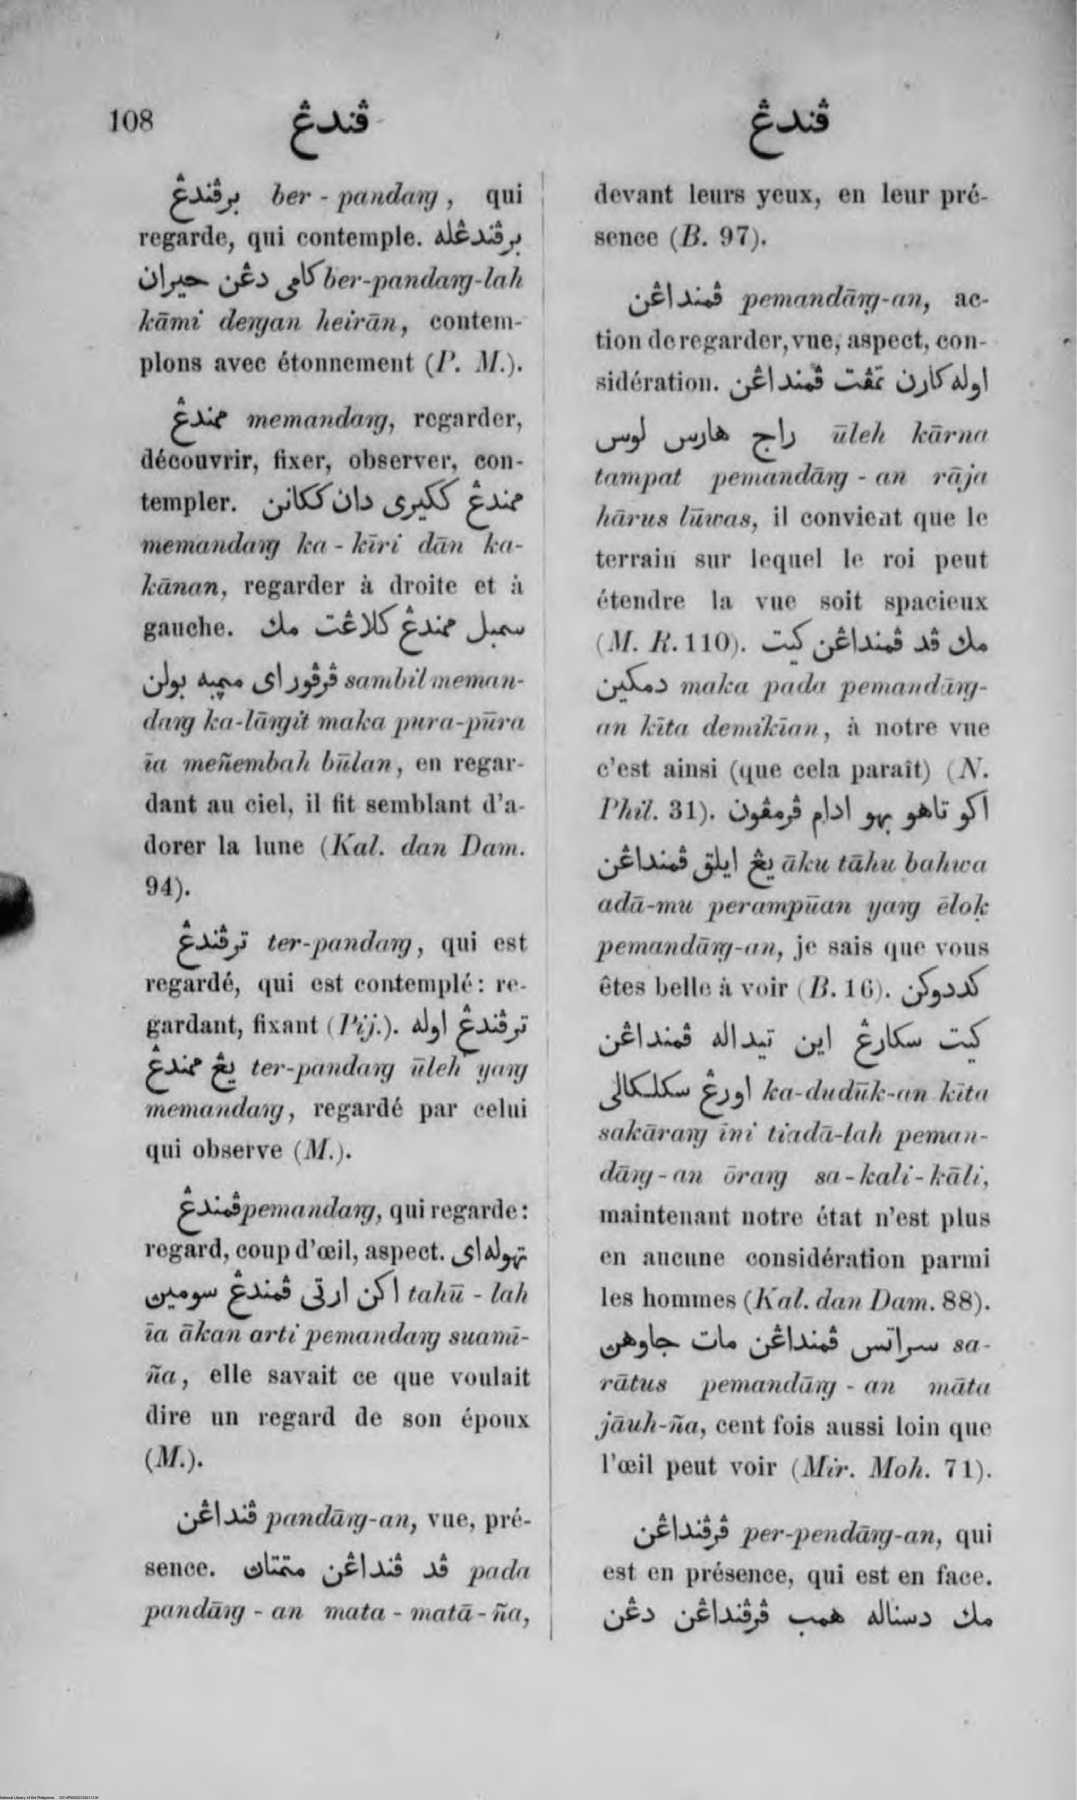 108 ڤندڠ ڤندڠ
برڤندڠ ber - pandaŋg, qui
regarde, qui contemple. برڤندڠله
كامي دڠن حيران ber-pandaŋg-lah
kāmi deŋgan heirān, contem-
plons avec étonnement (P. M.).
ممندڠ memandaŋg, regarder,
découvrir, fixer, observer, con-
templer. ممندڠ ككيري دان ككانن
memandaŋg ka - kīri dān ka-
kānan, regarder à droite et à
gauche. سمبل ممندڠ كلاڠت مك
ڤرڤوراي ميمبه بولن sambil meman-
daŋg ka-lāŋgit maka pura-pūra
īa meñembah būlan, en regar-
dant au ciel, il fit semblant d'a-
dorer la lune (Kal. dan Dam.
94).
ترڤندڠ ter-pandaŋg, qui est
regardé, qui est contemplé: re-
gardant, fixant (Pij.). ترڤندڠ اوله
يڠ ممندڠ ter-pandaŋg ūleh yaŋg
memandaŋg, regardé par celui
qui observe (M.).
ڤمندڠ pemandaŋg, qui regarde:
regard, coup d'œil, aspect. تهوله اي
اكن ارتي ڤمندڠ سومين tahū - lah
īa ākan arti pemandaŋg suamī-
ña, elle savait ce que voulait
dire un regard de son époux
(M.).
ڤنداڠن pandāŋg-an, vue, pré-
sence. ڤد ڤنداڠن متمتان pada
pandāŋg - an mata - matā - ña,
devant leurs yeux, en leur pré-
sence (B. 97).
ڤمنداڠن pemandāŋg-an, ac-
tion de regarder, vue, aspect, con-
sidération. اوله كارن تمڤت ڤمنداڠن
راج هارس لوس ūleh kārna
tampat pemandāŋg - an rāja
hārus lūwas, il convient que le
terrain sur lequel le roi peut
étendre la vue soit spacieux
(M. R. 110). مك ڤد ڤمنداڠن كيت
دمكين maka pada pemandāŋg-
an kīta demikīan, à notre vue
c'est ainsi (que cela paraît) (N.
Phil. 31). اكو تاهو بهو ادام ڤرمڤون
يڠ ايلق ڤمنداڠن āku tāhu bahwa
adā-mu perampūan yaŋg ēloḳ
pemandāŋg-an, je sais que vous
êtes belle à voir (B. 16). كددوكن
كيت سكارڠ اين تيداله ڤمنداڠن
اورڠ سكلكالي ka-dudūk-an kīta
sakāraŋg īni tiadā-lah peman-
dāŋg - an ōraŋg sa - kali - kāli,
maintenant notre état n'est plus
en aucune considération parmi
les hommes (Kal. dan Dam. 88).
سراتس ڤمنداڠن مات جاوهن sa-
rātus pemandāŋg - an māta
jāuh-ña, cent fois aussi loin que
l'œil peut voir (Mir. Moh. 71).
ڤرڤنداڠن per-pendāŋg-an, qui
est en présence, qui est en face.
مك دسناله همب ڤرڤنداڠن دڠن